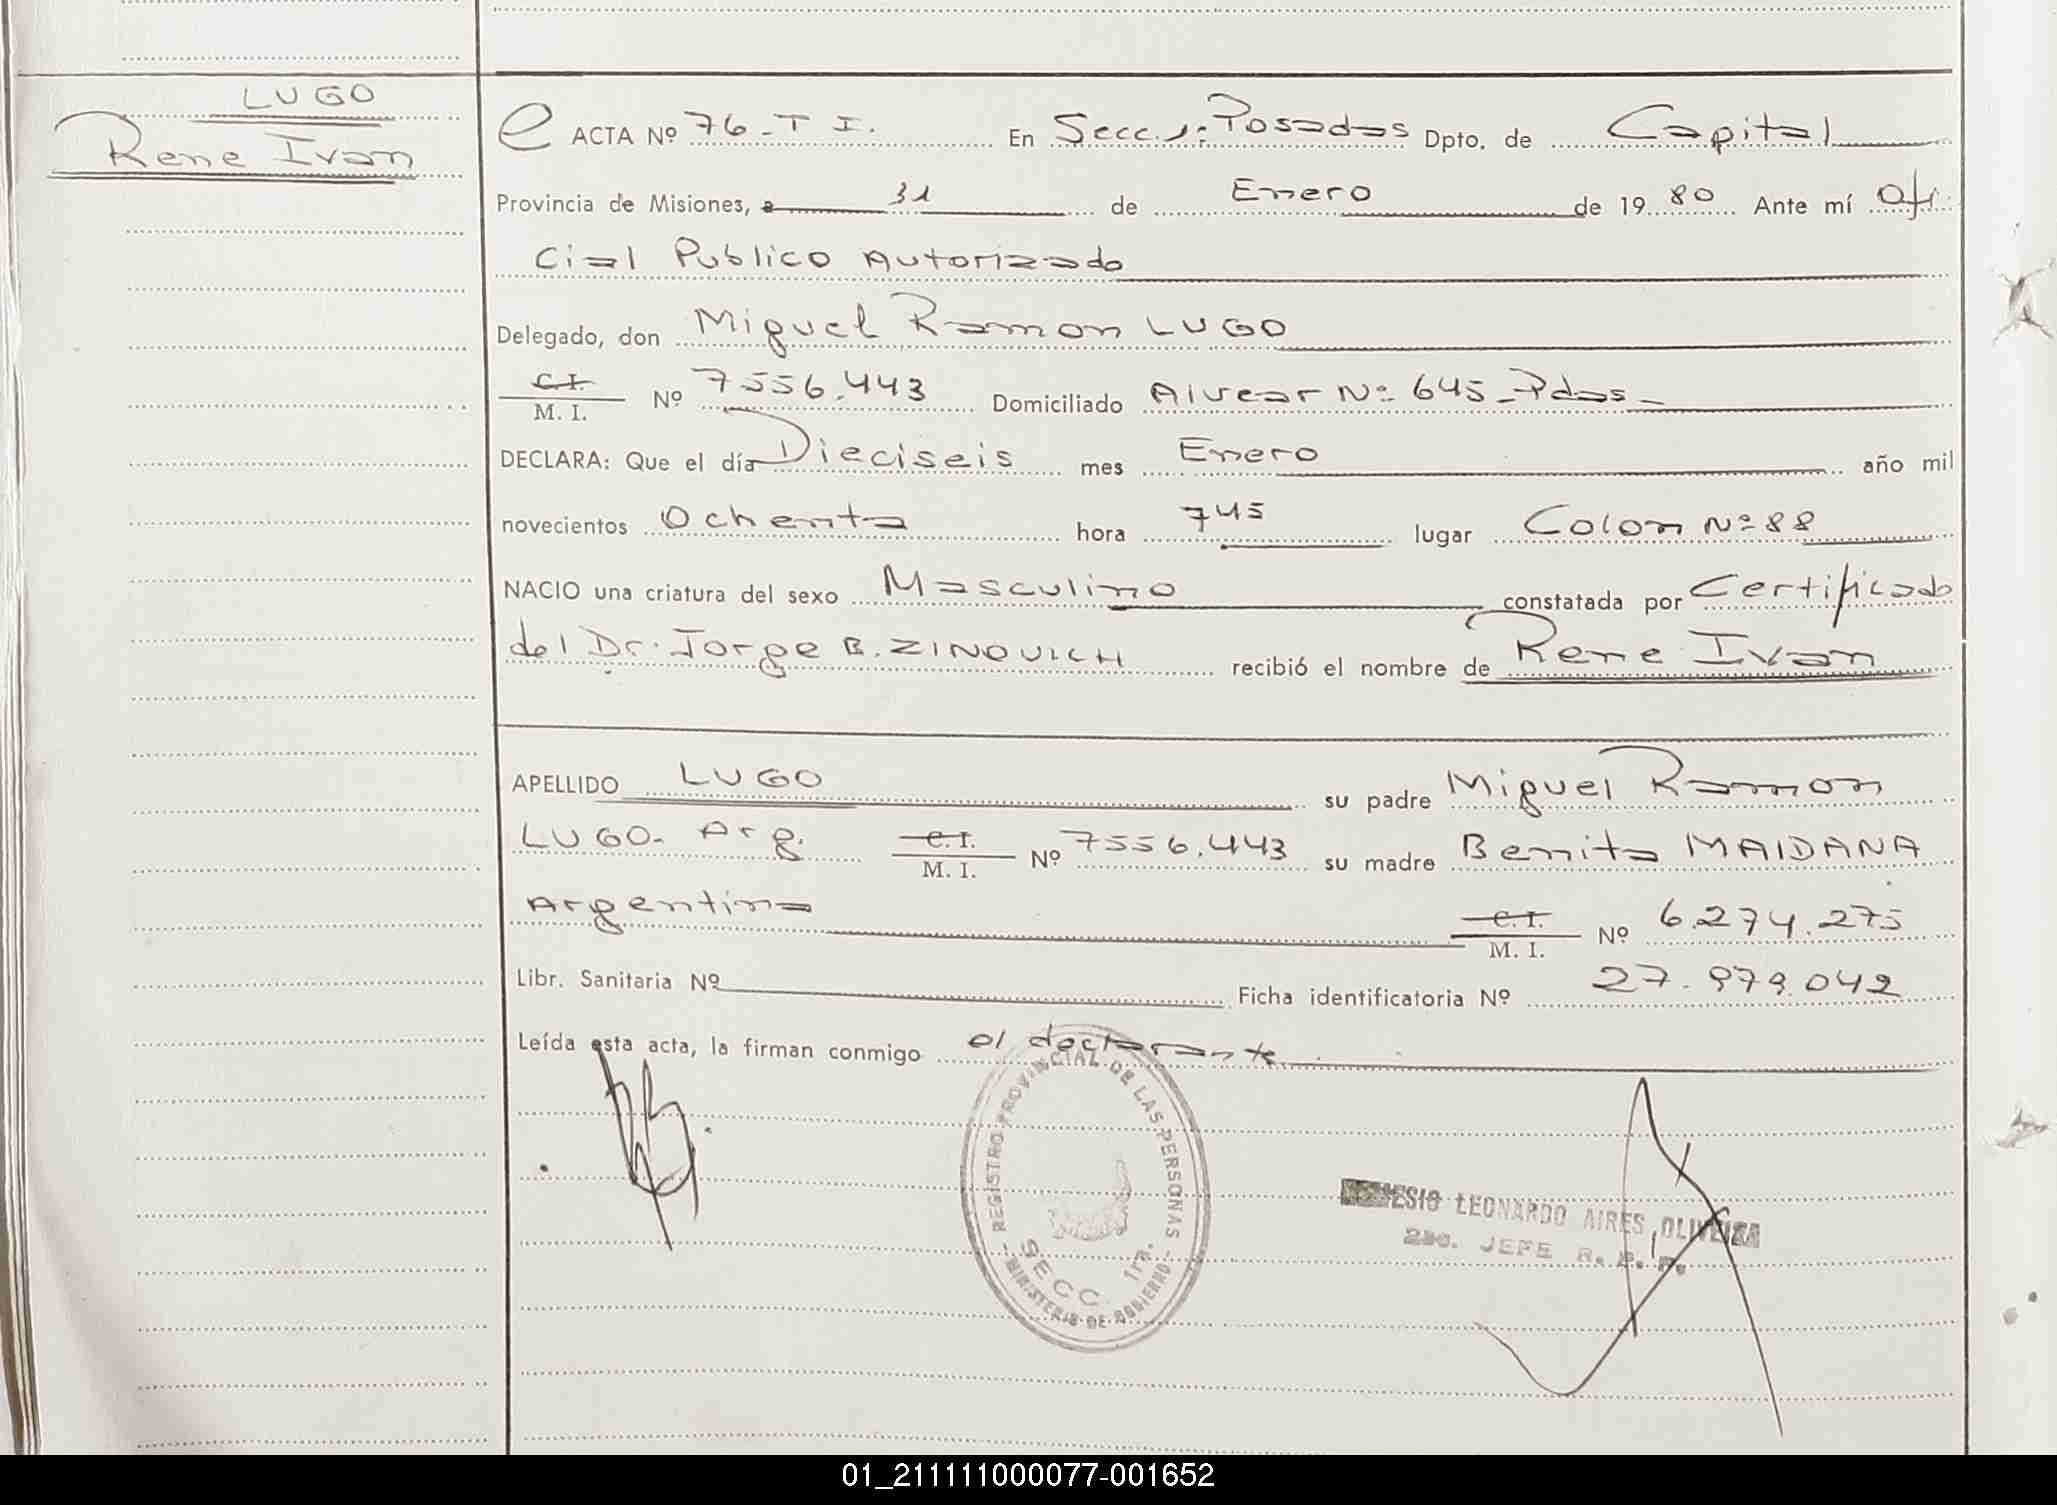 LUGO
Rene Ivan
e ACTA Nº 76-T I. En Secc. 1: Posadas Dpto. de Capital
Provincia de Misiones, a 31 de Enero de 1980 Ante mí Ofi
cial Publico Autorizado
Delegado, don Miguel Ramon LUGO
C.I.
M. I. Nº 7556.443 Domiciliado Alvear Nº 645-Pdas-
DECLARA: Que el día Dieciseis mes Enero año mil
novecientos Ochenta hora 745 lugar Colon Nº 88
NACIO una criatura del sexo Masculino constatada por Certificado
del Dr. Jorge B. ZINOVICH recibió el nombre de Rene Ivan
APELLIDO LUGO su padre Miguel Ramon
LUGO- Arg. C. I.
M. I. Nº 7556.443 su madre Benita MAIDANA
Argentina C. I.
M. I. Nº 6.274.275
Libr. Sanitaria Nº Ficha identificatoria Nº 27.979.042
Leída esta acta, la firman conmigo el declarante
REGISTRO PROVINCIAL DE LAS PERSONAS
SECC. 1ra.
MINISTERIO DE GOBIERNO
LEONARDO AIRES OLIVEIRA
2do. JEFE R. P. P.
01_211111000077-001652